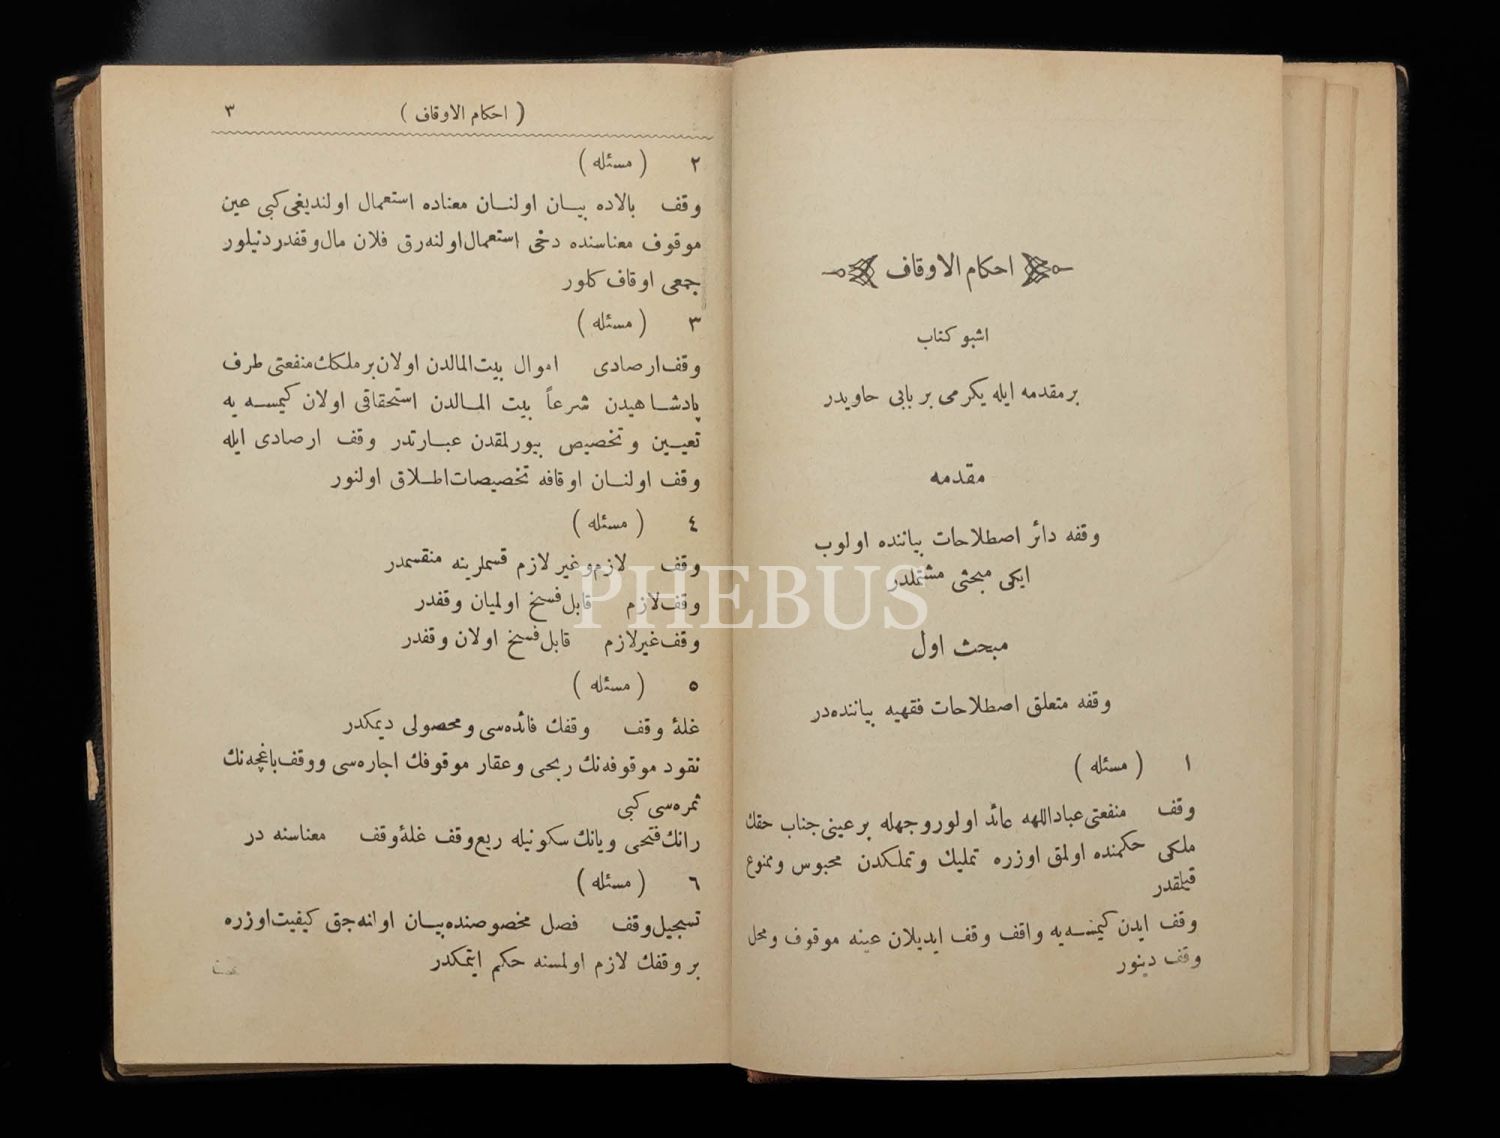 احكام الاوقاف
اشبو كتاب
بر مقدمه ايله يكرمى بر بابى حاويدر
مقدمه
وقفه دائر اصطلاحات بياننده اولوب
ايكى مبحثى مشتملدر
مبحث اول
وقفه متعلق اصطلاحات فقهيه بياننده در
١ ( مسئله )
وقف منفعتى عباداللهه عائد اولور وجهله بر عينى جناب حقك
ملكى حكمنده اولمق اوزره تمليك وتملكدن محبوس وممنوع
قيلقدر
وقف ايدن كيمسه يه واقف وقف ايديلان عينه موقوف ومحل
وقف دينور
٣ ( احكام الاوقاف )
٢ ( مسئله )
وقف بالاده بيان اولنان معناده استعمال اولنديغى كبى عين
موقوف معناسنده دخى استعمال اولنه رق فلان مال وقفدر دنيلور
جمعى اوقاف كلور
٣ ( مسئله )
وقف ارصادى اموال بيت المالدن اولان بر ملكك منفعتى طرف
پادشاهيدن شرعاً بيت المالدن استحقاقى اولان كيمسه يه
تعيين وتخصيص بيورلمقدن عبارتدر وقف ارصادى ايله
وقف اولنان اوقافه تخصيصات اطلاق اولنور
٤ ( مسئله )
وقف لازم وغير لازم قسملرينه منقسمدر
وقف لازم قابل فسخ اولميان وقفدر
وقف غير لازم قابل فسخ اولان وقفدر
٥ ( مسئله )
غلۀ وقف وقفك فائده سى ومحصولى ديمكدر
نقود موقوفه نك ربحى وعقار موقوفك اجاره سى ووقف باغچه نك
ثمره سى كبى
رانك فتحى ويانك سكونيله ريع وقف غلۀ وقف معناسنه در
٦ ( مسئله )
تسجيل وقف فصل مخصوصنده بيان اولنه جق كيفيت اوزره
بر وقفك لازم اولمسنه حكم ايتمكدر
PHEBUS